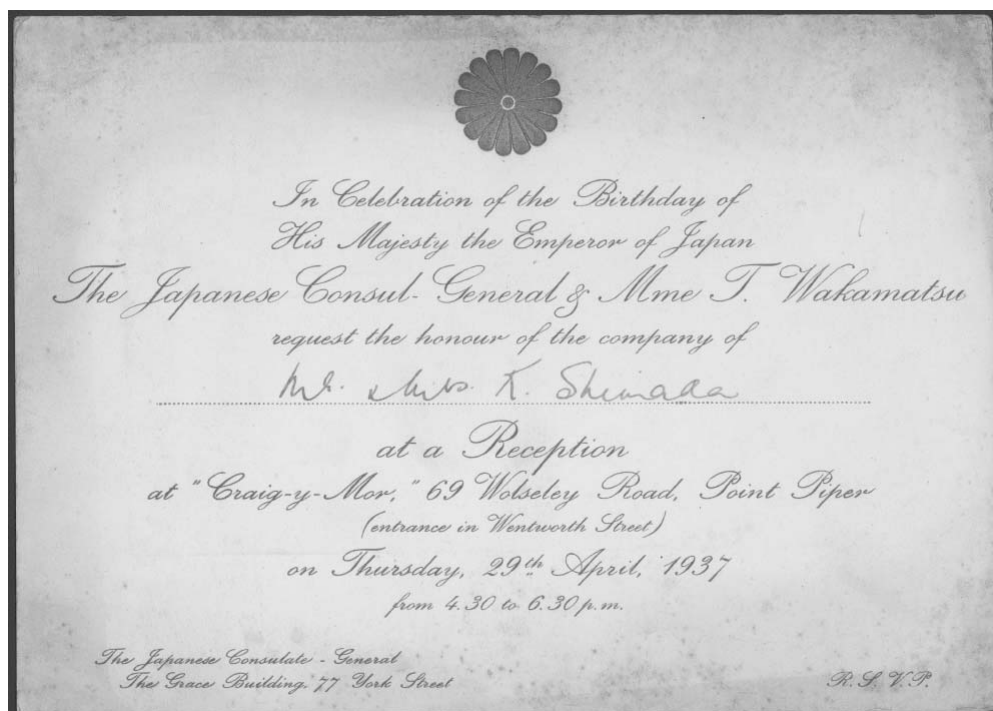 In Celebration of the Birthday of
His Majesty the Emperor of Japan
The Japanese Consul-General & Mme T. Wakamatsu
request the honour of the company of
Mr. & Mrs. K. Shimada
at a Reception
at "Craig-y-Mor," 69 Wolseley Road, Point Piper
(entrance in Wentworth Street)
on Thursday, 29th April, 1937
from 4.30 to 6.30 p.m.
The Japanese Consulate - General
The Grace Building, 77 York Street
R. S. V. P.